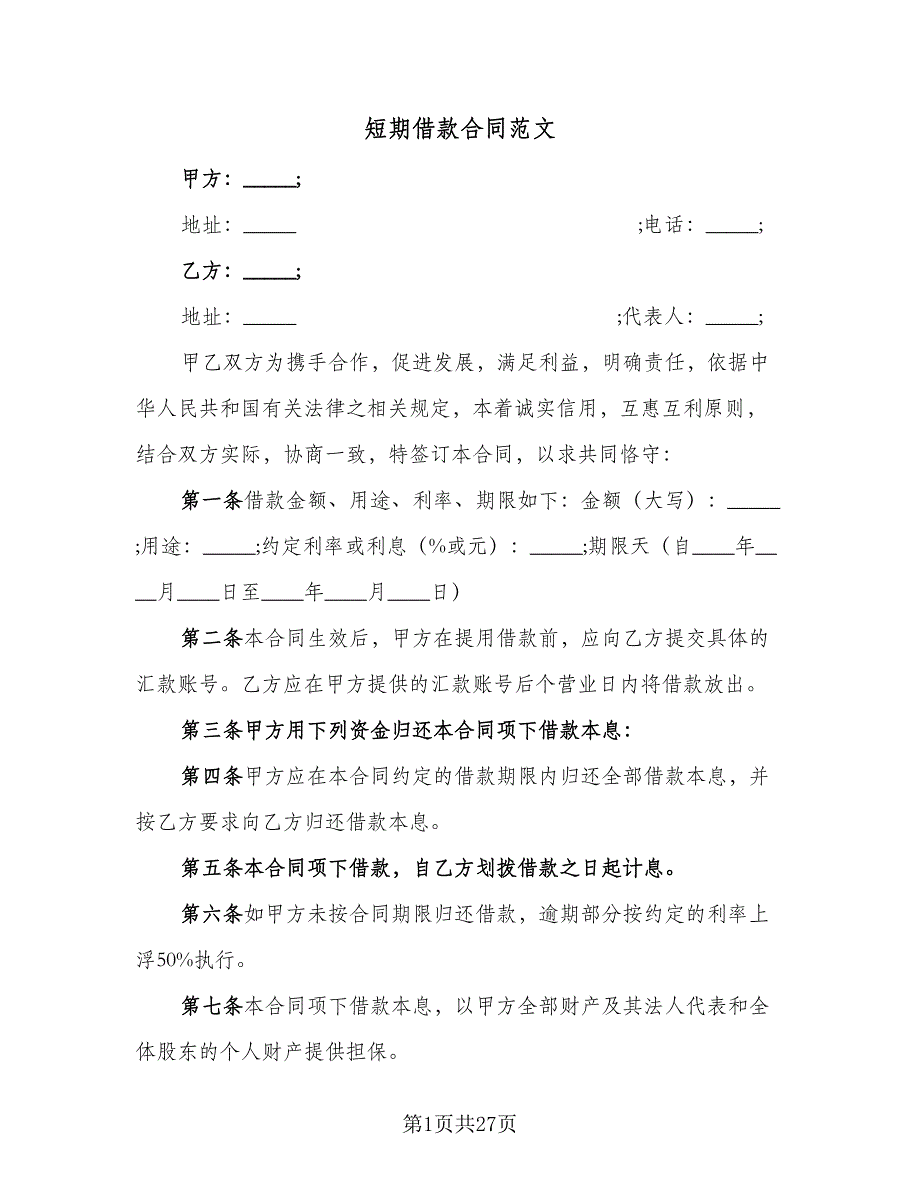 短期借款合同范文
甲方：_____;
地址：_____ ;电话：_____;
乙方：_____;
地址：_____ ;代表人：_____;
甲乙双方为携手合作，促进发展，满足利益，明确责任，依据中
华人民共和国有关法律之相关规定，本着诚实信用，互惠互利原则，
结合双方实际，协商一致，特签订本合同，以求共同恪守：
第一条借款金额、用途、利率、期限如下：金额（大写）：_____
;用途：_____;约定利率或利息（%或元）：_____;期限天（自____年__
__月____日至____年____月____日）
第二条本合同生效后，甲方在提用借款前，应向乙方提交具体的
汇款账号。乙方应在甲方提供的汇款账号后个营业日内将借款放出。
第三条甲方用下列资金归还本合同项下借款本息：
第四条甲方应在本合同约定的借款期限内归还全部借款本息，并
按乙方要求向乙方归还借款本息。
第五条本合同项下借款，自乙方划拨借款之日起计息。
第六条如甲方未按合同期限归还借款，逾期部分按约定的利率上
浮50%执行。
第七条本合同项下借款本息，以甲方全部财产及其法人代表和全
体股东的个人财产提供担保。
第1页共27页